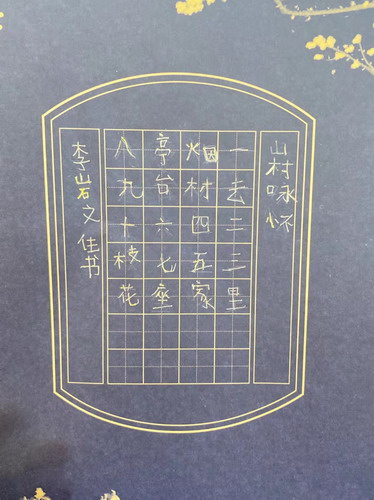 山村咏怀
一去三三里
烟材四五家
亭台六七座
八九十枝花
李岩文佳书